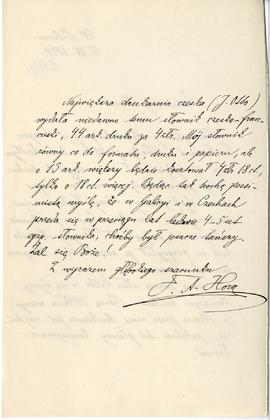 Największa drukarnia czeska (J. Otto)
wydała niedawno temu słownik czesko-fran-
cuski, 44 ark. druku za 4 złr. Mój słownik
równy co do formatu, druku i papieru, ale
o 13 ark. większy będzie kosztował 4 złr 18 ct,
tylko o 18 ct. więcej. Będąc tak trochę pesi-
mistą myślę, że w Galicyi i w Czechach
przeda się w przeciągu lat ledwie 4-5 set
egz. słownika, choćby był jeszcze tańszy.
Żal się Boże!
Z wyrazem głębokiego szacunku
F. A. Hora